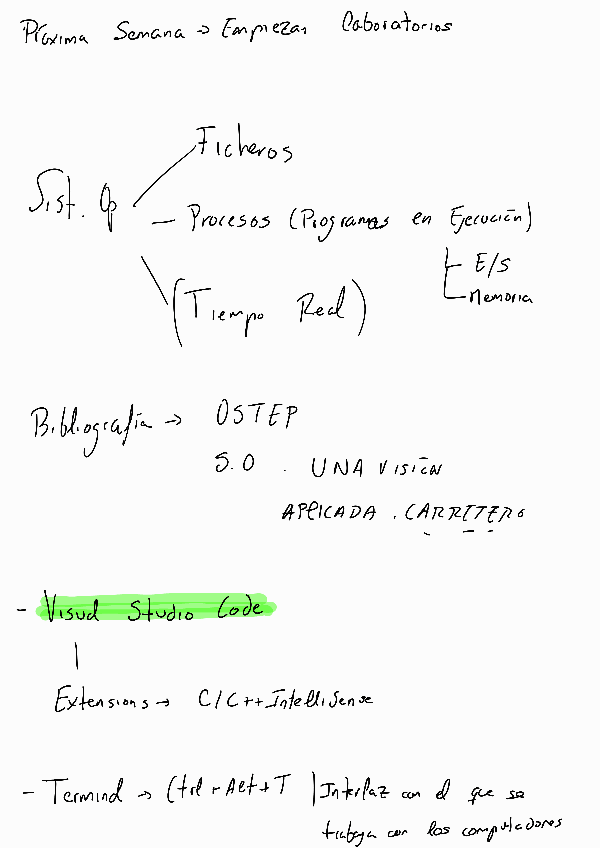 Próxima Semana → Empezar Laboratorios
Ficheros
Sist. Op
— Procesos (Programas en Ejecución)
E/S
Memoria
(Tiempo Real)
Bibliografía → OSTEP
S.O. UNA VISIÓN
APLICADA. CARRETERO
- Visual Studio Code
Extensions → C/C++ IntelliSense
- Terminal → Ctrl + Alt + T | Interfaz con el que se
trabaja con los computadores